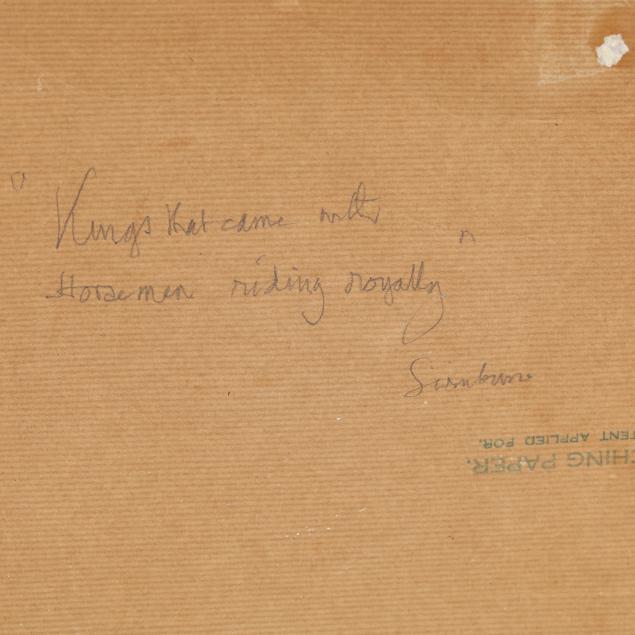 "Kings that came with
Horsemen riding royally"
TENT APPLIED FOR.
CHING PAPER.